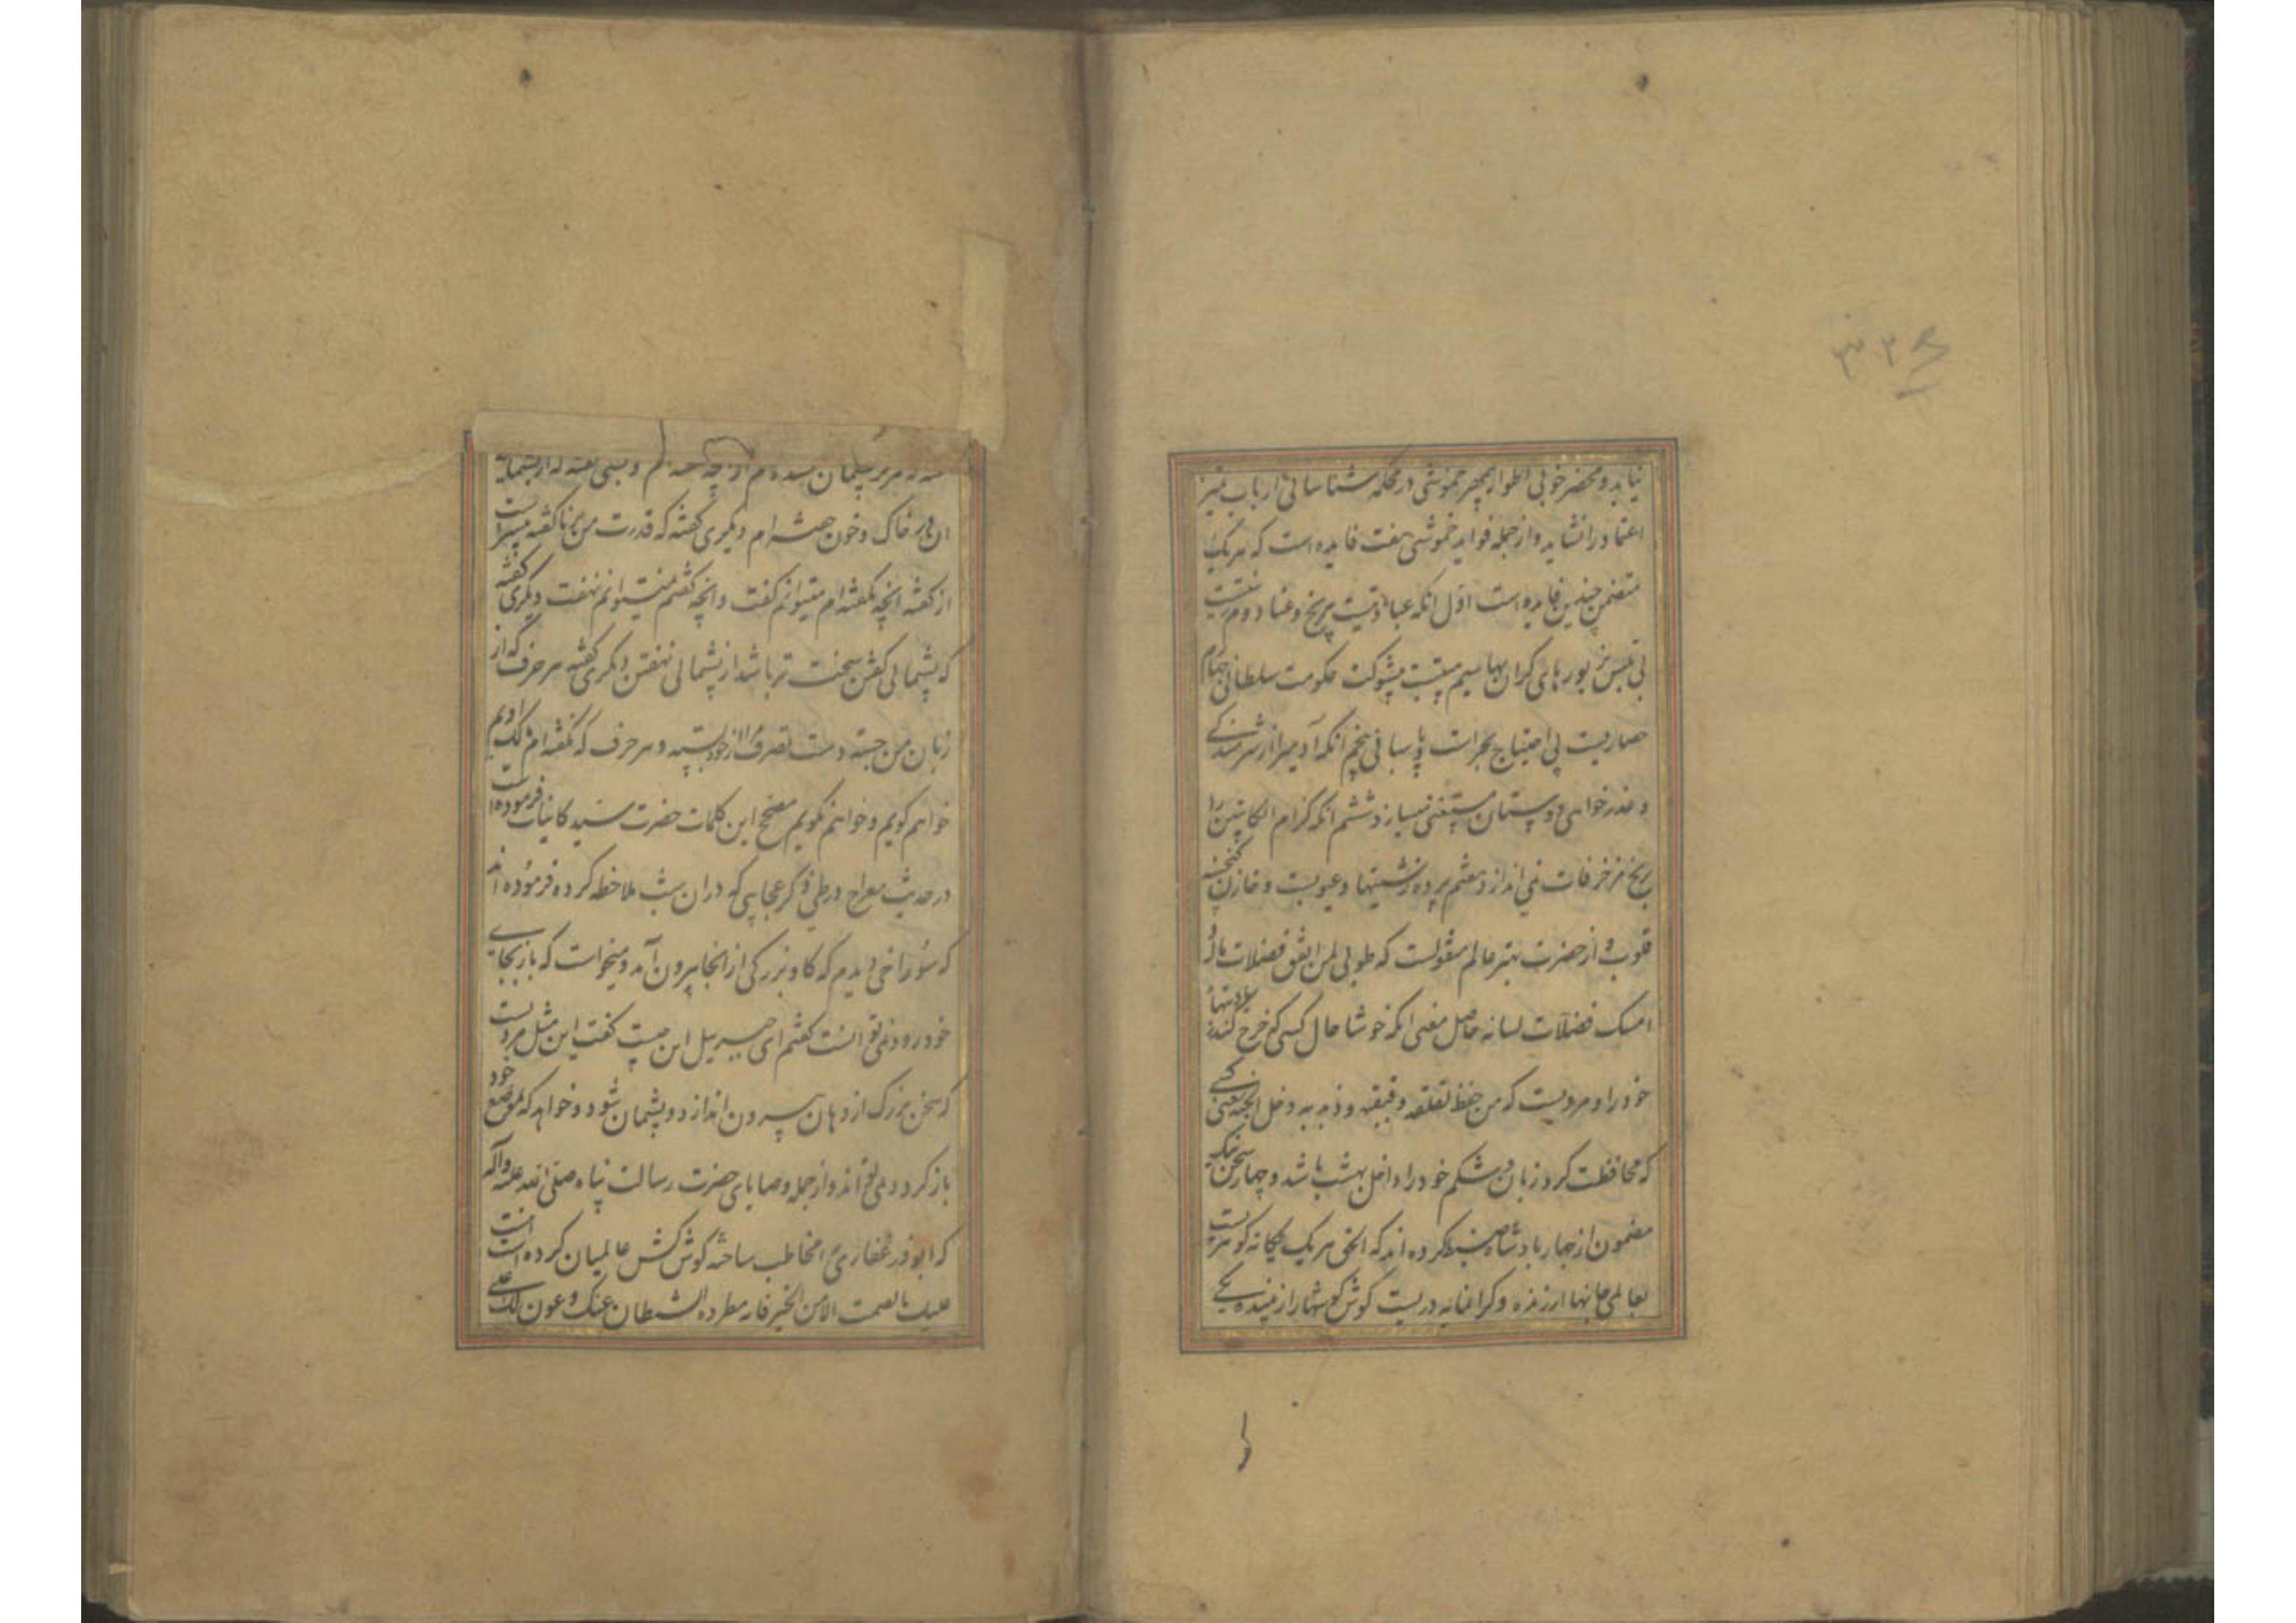 نیاید و محضر خوبی اطوار بجهر خموشی در محکمه شناسائی ارباب تمیز
اعتماد را نشاید و از جمله فواید خموشی هفت فایده است که هر یک
متضمن چندین فایده است اول انکه عبادتیست بی رنج و عنا دوم زینتیست
بی تلبس زیورهای کران بها سیم هیبتیست بی شوکت حکومت سلطانی چهارم
حصاریست بی احتیاج بحراست و پاسبانی پنجم انکه آدمی را از شرمندکی
و عذرخواهی دوستان مستغنی میسازد ششم انکه کرام الکاتبین را
برنج مزخرفات نمی اندازد هفتم پرده زشتیها و عیوبست و خازن کنجینه
قلوب و از حضرت بهتر عالم منقولست که طوبی لمن انفق فضلات ماله و
امسک فضلات لسانه حاصل معنی انکه خوشا حال کسی که خرج کند
خود را و مرویست که من حفظ لقلقه و قبقبه و ذبذبه دخل الجنة یعنی کسی
که محافظت کرد زبان و شکم خود را داخل بهشت باشد و چهار سخن یک
مضمون از چهار پادشاه ضبط کرده اند که الحق هر یک یکانه کوهریست
بعالمی جانها ارزنده و کرانمایه دریست کوش هوشها را زیبنده یکی
پشیمان شده ام از
ان در خاک و خون خفته ام دیگری کفته که قدرت من بر ناکفته بیشتر است
از کفته انچه نکفته ام میتوانم کفت و انچه کفتم نمیتوانم نهفت دیگری کفته
که پشیمانی کفتن سخت تر باشد از پشیمانی نهفتن دیگری کفته هر حرف که از
زبان من جسته دست تصرف مرا از خود بسته و هر حرف که نکفته ام مالک اویم
خواهم کویم و خواهم نکویم مصحح این کلمات حضرت سید کاینات فرموده است
در حدیث معراج در طی ذکر عجایبی که در ان شب ملاحظه کرده فرموده اند
که سوراخی دیدم که کاو بزرکی از انجا بیرون آمد و میخواست که باز بجای
خود رود نمی توانست کفتم ای جبرییل این چیست کفت این مثل مردیست
که سخن بزرک از دهان بیرون اندازد و پشیمان شود و خواهد که بموضع خود
باز کردد نمی تواند و از جمله وصایای حضرت رسالت پناه صلی الله علیه وآله
که ابوذر غفاری را مخاطب ساخته کوش کش عالمیان کرده است
علیک بالصمت الا من الخیر فانه مطرده الشیطان عنک و عون لک علی